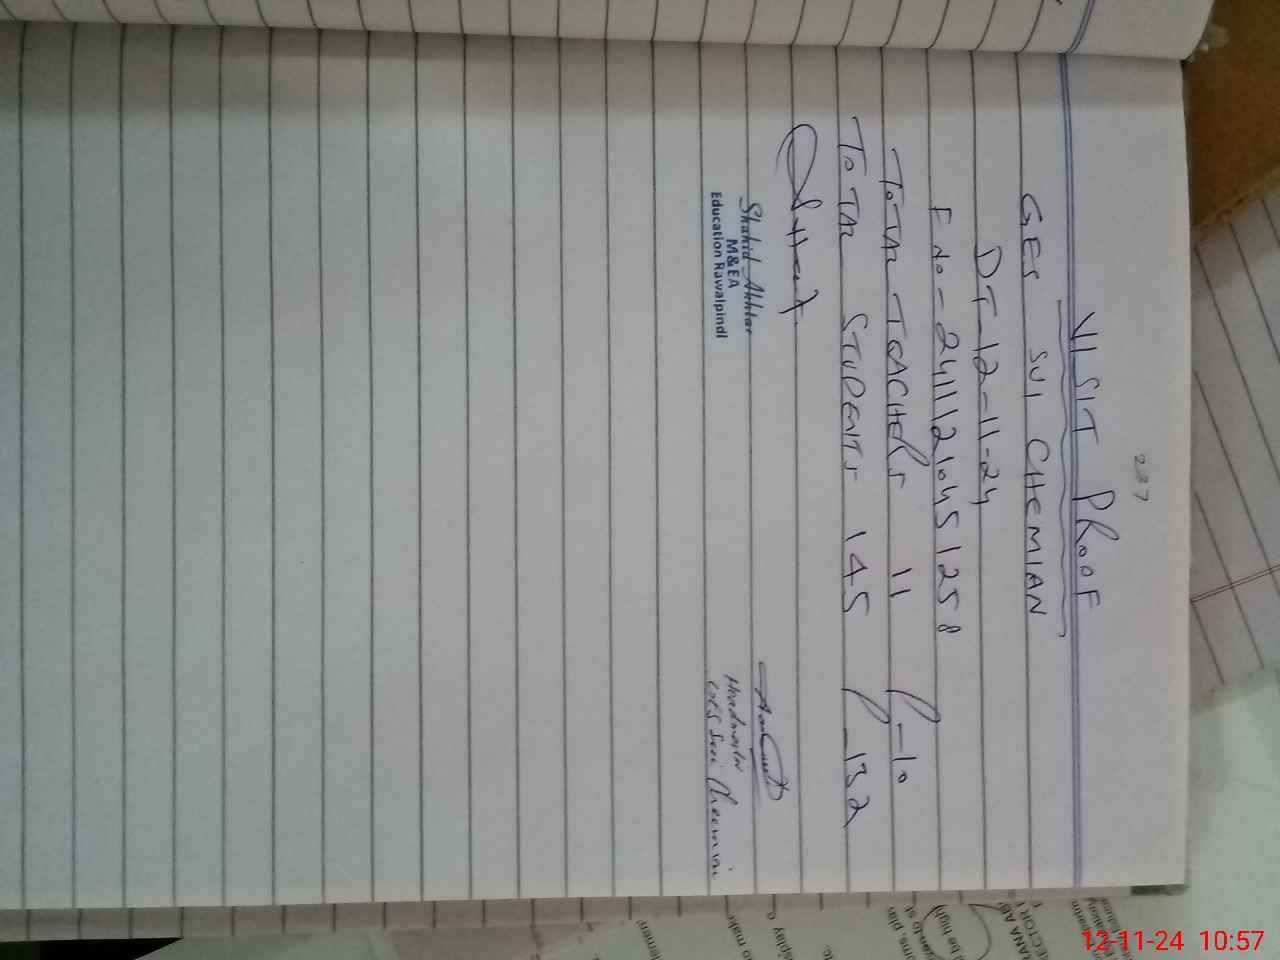 237
VISIT PROOF
GES SUI CHEMIAN
DT-12-11-24
F No - 241111210451258
TOTAL TEACHERS 11 P-10
TOTAL STUDENTS 145 P-132
Shahid Akhtar
M&EA
Education Rawalpindi
Headmaster
GES Sui Cheemian
12-11-24 10:57